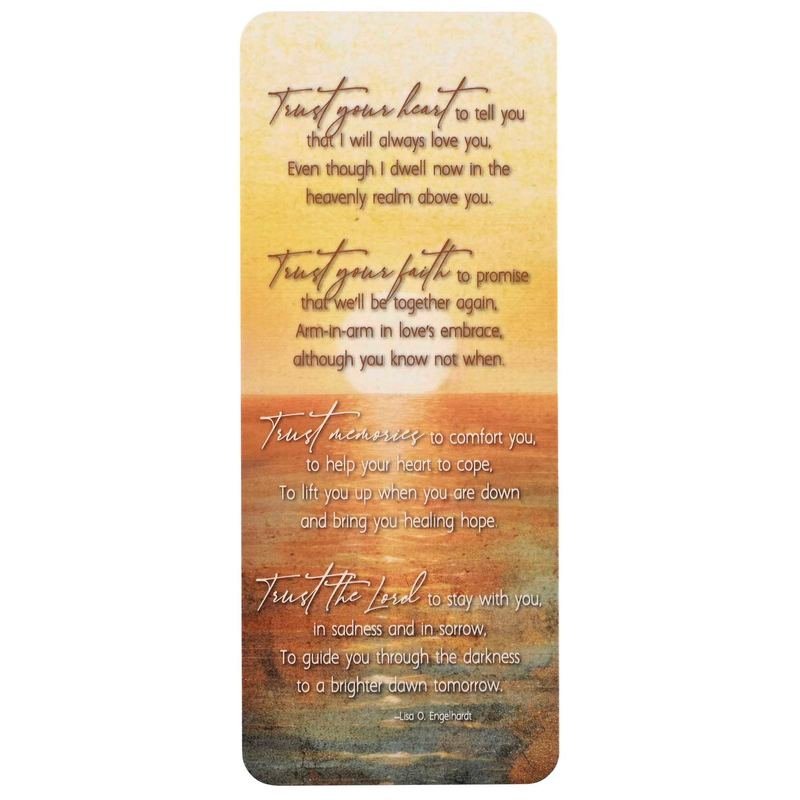 Trust your heart to tell you
that I will always love you,
Even though I dwell now in the
heavenly realm above you.
Trust your faith to promise
that we'll be together again,
Arm-in-arm in love's embrace,
although you know not when.
Trust memories to comfort you,
to help your heart to cope,
To lift you up when you are down
and bring you healing hope.
Trust the Lord to stay with you,
in sadness and in sorrow,
To guide you through the darkness
to a brighter dawn tomorrow.
—Lisa O. Engelhardt